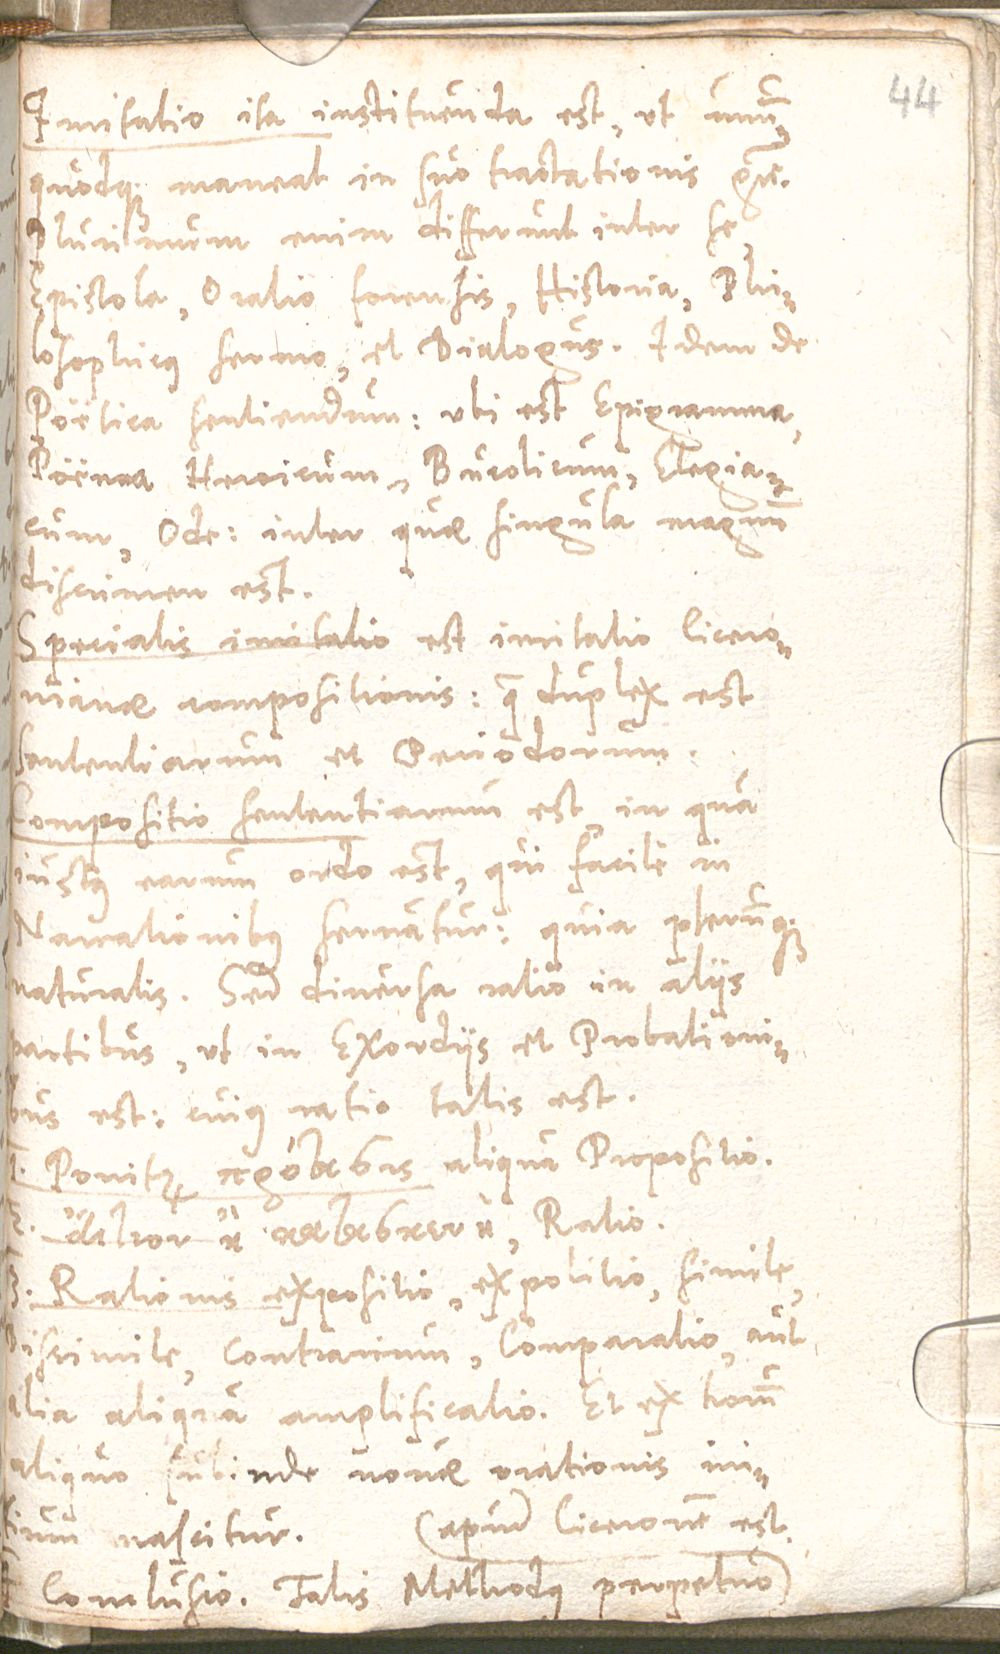 44
Imitatio ita instituenda est, ut unū„
quodq; maneat in suo tractationis gñe.
Plurimum enim differunt inter se,
Epistola, Oratio forensis, Historia, Phi„
losophicus sermo, et Dialogus. Idem de
Poëtica sentiendum: ubi est Epigramma,
Poëma Heroicum, Bucolicum, Elegia„
cum, Ode: inter quæ singula magnū
discrimen est.
Specialis imitatio est imitatio Cicero„
nianæ compositionis: q̄ duplex est
Sententiarum et Periodorum.
Compositio sententiarum est, in qua
iustus earum ordo est, qui facilè in
Narrationibus servatur: quia plerunq;
naturalis. Sed diversa ratio in alijs
partibus, ut in Exordijs et Probationi„
bus est: cuius ratio talis est.
1. Ponitur πρόθεσις aliqua Propositio.
2. ἄιτιον ἢ κατασκευὴ, Ratio.
3. Rationis expositio, expolitio, simile,
Dissimile, Contrarium, Comparatio, aut
alia aliqua amplificatio. Et ex horū
aliquo subinde novæ orationis ini„
tium nascitur. (apud Ciceronē est.
4 Conclusio. Talis Methodus perpetuo)